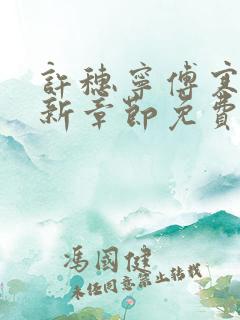 許穗寧傅寒
新章節免費
馮國健
未經同意禁止轉載